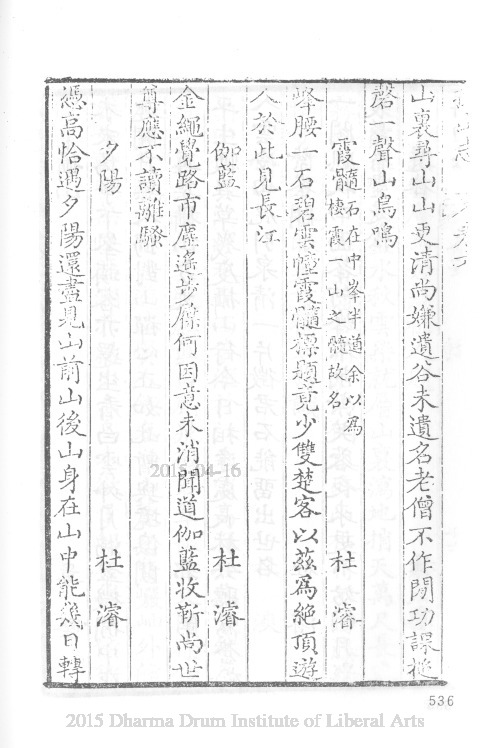 山裏尋山山更清尚嫌遺谷未遺名老僧不作閒功課槌
磬一聲山鳥鳴
霞髓 石在中峯半道余以為
棲霞一山之髓故名 杜濬
峯腰一石碧雲幢霞髓標題竟少雙楚客以茲為絕頂遊
人於此見長江
伽藍 杜濬
金繩覺路市塵遙步屧何因意未消聞道伽藍收靳尚世
尊應不讀離騷
夕陽 杜濬
憑高恰遇夕陽還盡見山前山後山身在山中能幾日轉
536
2015-04-16
2015 Dharma Drum Institute of Liberal Arts